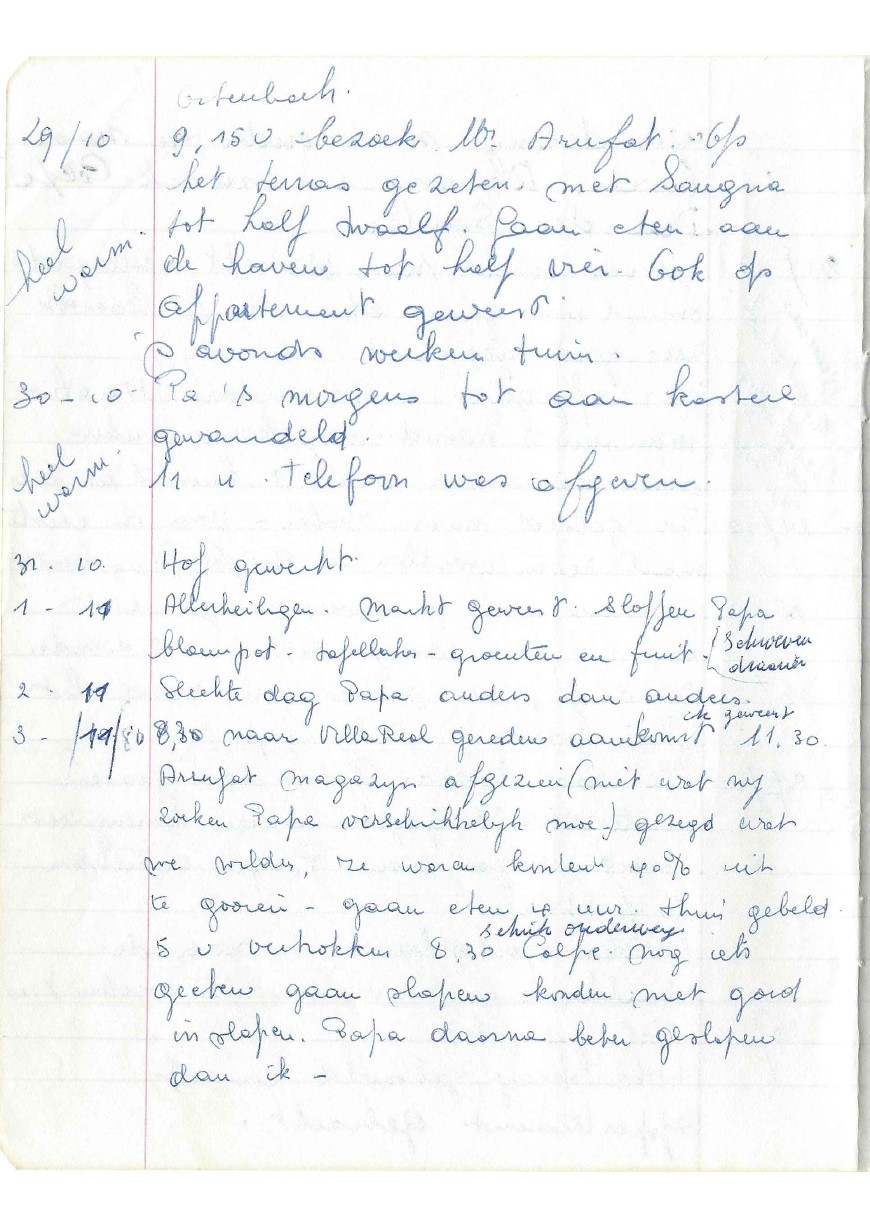 29/10 9,15 u bezoek Mr Arufat. Op
het terras gezeten met Sangria
tot half twaalf. Gaan eten aan
heel warm. de haven tot half vier. Ook op
appartement geweest.
's avonds werken tuin.
30-10 Pa 's morgens tot aan kasteel
gewandeld.
heel warm. 11 u. telefoon was afgeven.
31. 10. Hof gewerkt.
1 - 11 Allerheiligen. Markt geweest. Sloffen Papa
bloempot - tafellaken - groenten en fruit -
2 - 11 Slechte dag Papa anders dan anders.
ik geweest
3 - /11/80 8,30 naar Villa Real gereden aankomst 11.30.
Arrufat magazijn afgezien (niet wat wij
zoeken Papa verschikkelijk moe) gezegd wat
we wilden, ze waren kontent 40% uit
te gooien - gaan eten 4 uur thuis gebeld.
schrik onderweg
5 u vertrokken 8,30 Calpe. nog iets
geeten gaan slapen konden niet goed
inslapen. Papa daarna beter geslapen
dan ik -